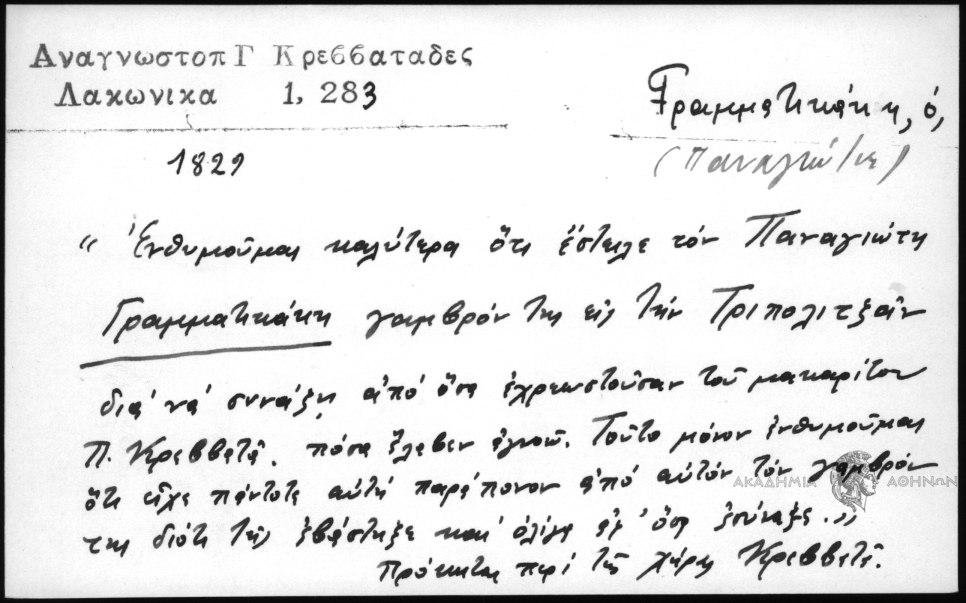 Αναγνωστοπ Γ Κρεββαταδες
Λακωνικα 1, 283
Γραμματικάκη, ὁ,
(Παναγιώτης)
1829
"Ἐνθυμοῦμαι καλύτερα ὅτι ἔστειλε τόν Παναγιώτη
Γραμματικάκη γαμβρόν της εἰς τήν Τριπολιτζᾶν
διά νά συνάξῃ ἀπό ὅσα ἐχρεωστοῦσαν τοῦ μακαρίτου
Π. Κρεββατᾶ. πόσα ἔλαβεν ἀγνοῶ. Τοῦτο μόνον ἐνθυμοῦμαι
ὅτι εἶχε πάντοτε αὐτή παράπονον ἀπό αὐτόν τόν γαμβρόν
της διότι τῆς ἐβάστηξε καί ὀλίγα ἀπ' ὅσα ἐσύναξε."
Πρόκειται περί τῆς χήρας Κρεββατᾶ.
ΑΚΑΔΗΜΙΑ ΑΘΗΝΩΝ